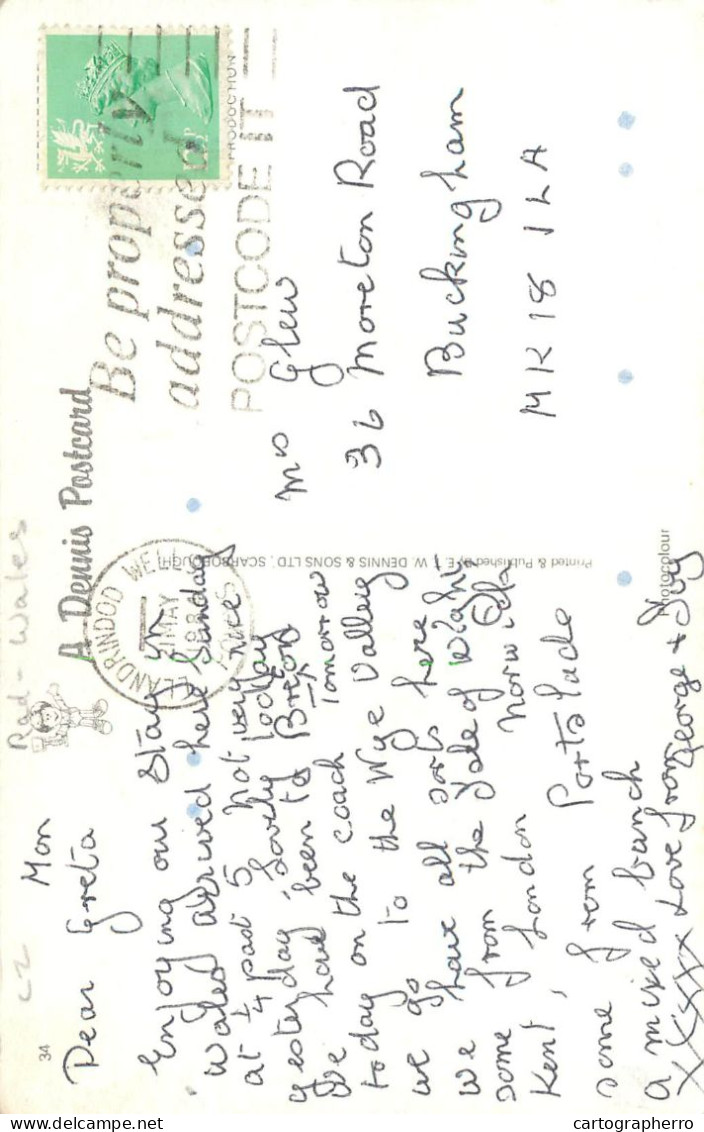 34
CZ
Rad - Wales
A Dennis Postcard
Mon
Dear Greta
Enjoying our stay in
Wales arrived here Sunday
at ¼ past 5 Not very nice
yesterday, Lovely today
We have been to Brecon
today on the coach Tomorrow
we go to the Wye Valley
We have all sorts here
some from the Isle of Wight
Kent, from London Norwich
some from Portslade
a mixed bunch
XXXXX Love from George + Ivy
Printed & Published by E. T. W. DENNIS & SONS LTD., SCARBOROUGH
Photocolour
PRODUCTION
LLANDRINDOD WELLS
MAY
POWYS
Be properly
addressed
POSTCODE IT
Mrs Glew
36 Moreton Road
Buckingham
MK18 1LA
cartographerro